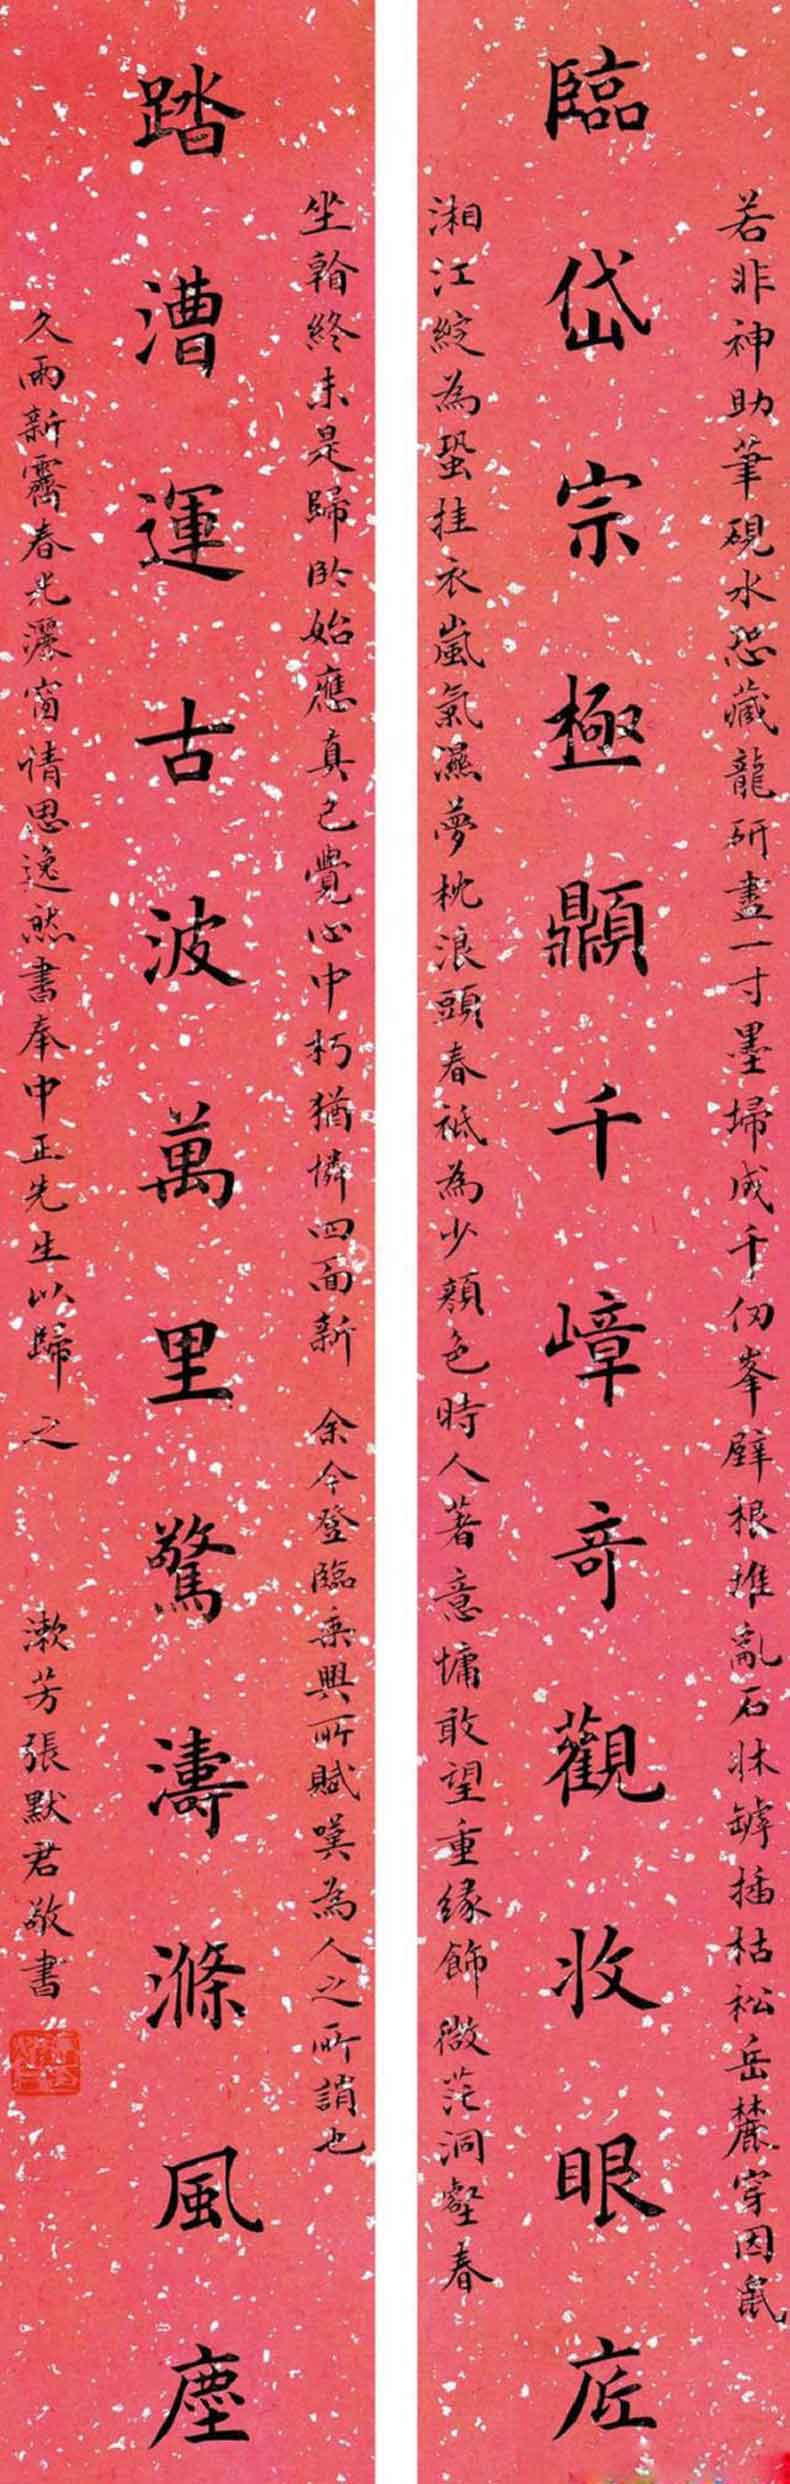 若非神助筆硯水恐藏龍研盡一寸墨埽成千仞峯壁根堆亂石牀罅插枯松岳麓穿因鼠
臨岱宗極顥千嶂奇觀收眼底
湘江綻為蛩挂衣嵐氣濕夢枕浪頭春祗為少顏色時人著意慵敢望重緣飾微茫洞壑春
坐翰終未是歸臥始應真已覺心中朽猶憐四面新 余今登臨乘興所賦嘆為人之所誚也
踏漕運古波萬里驚濤滌風塵
久雨新霽春光灑窗情思逸然書奉中正先生以歸之 漱芳張默君敬書